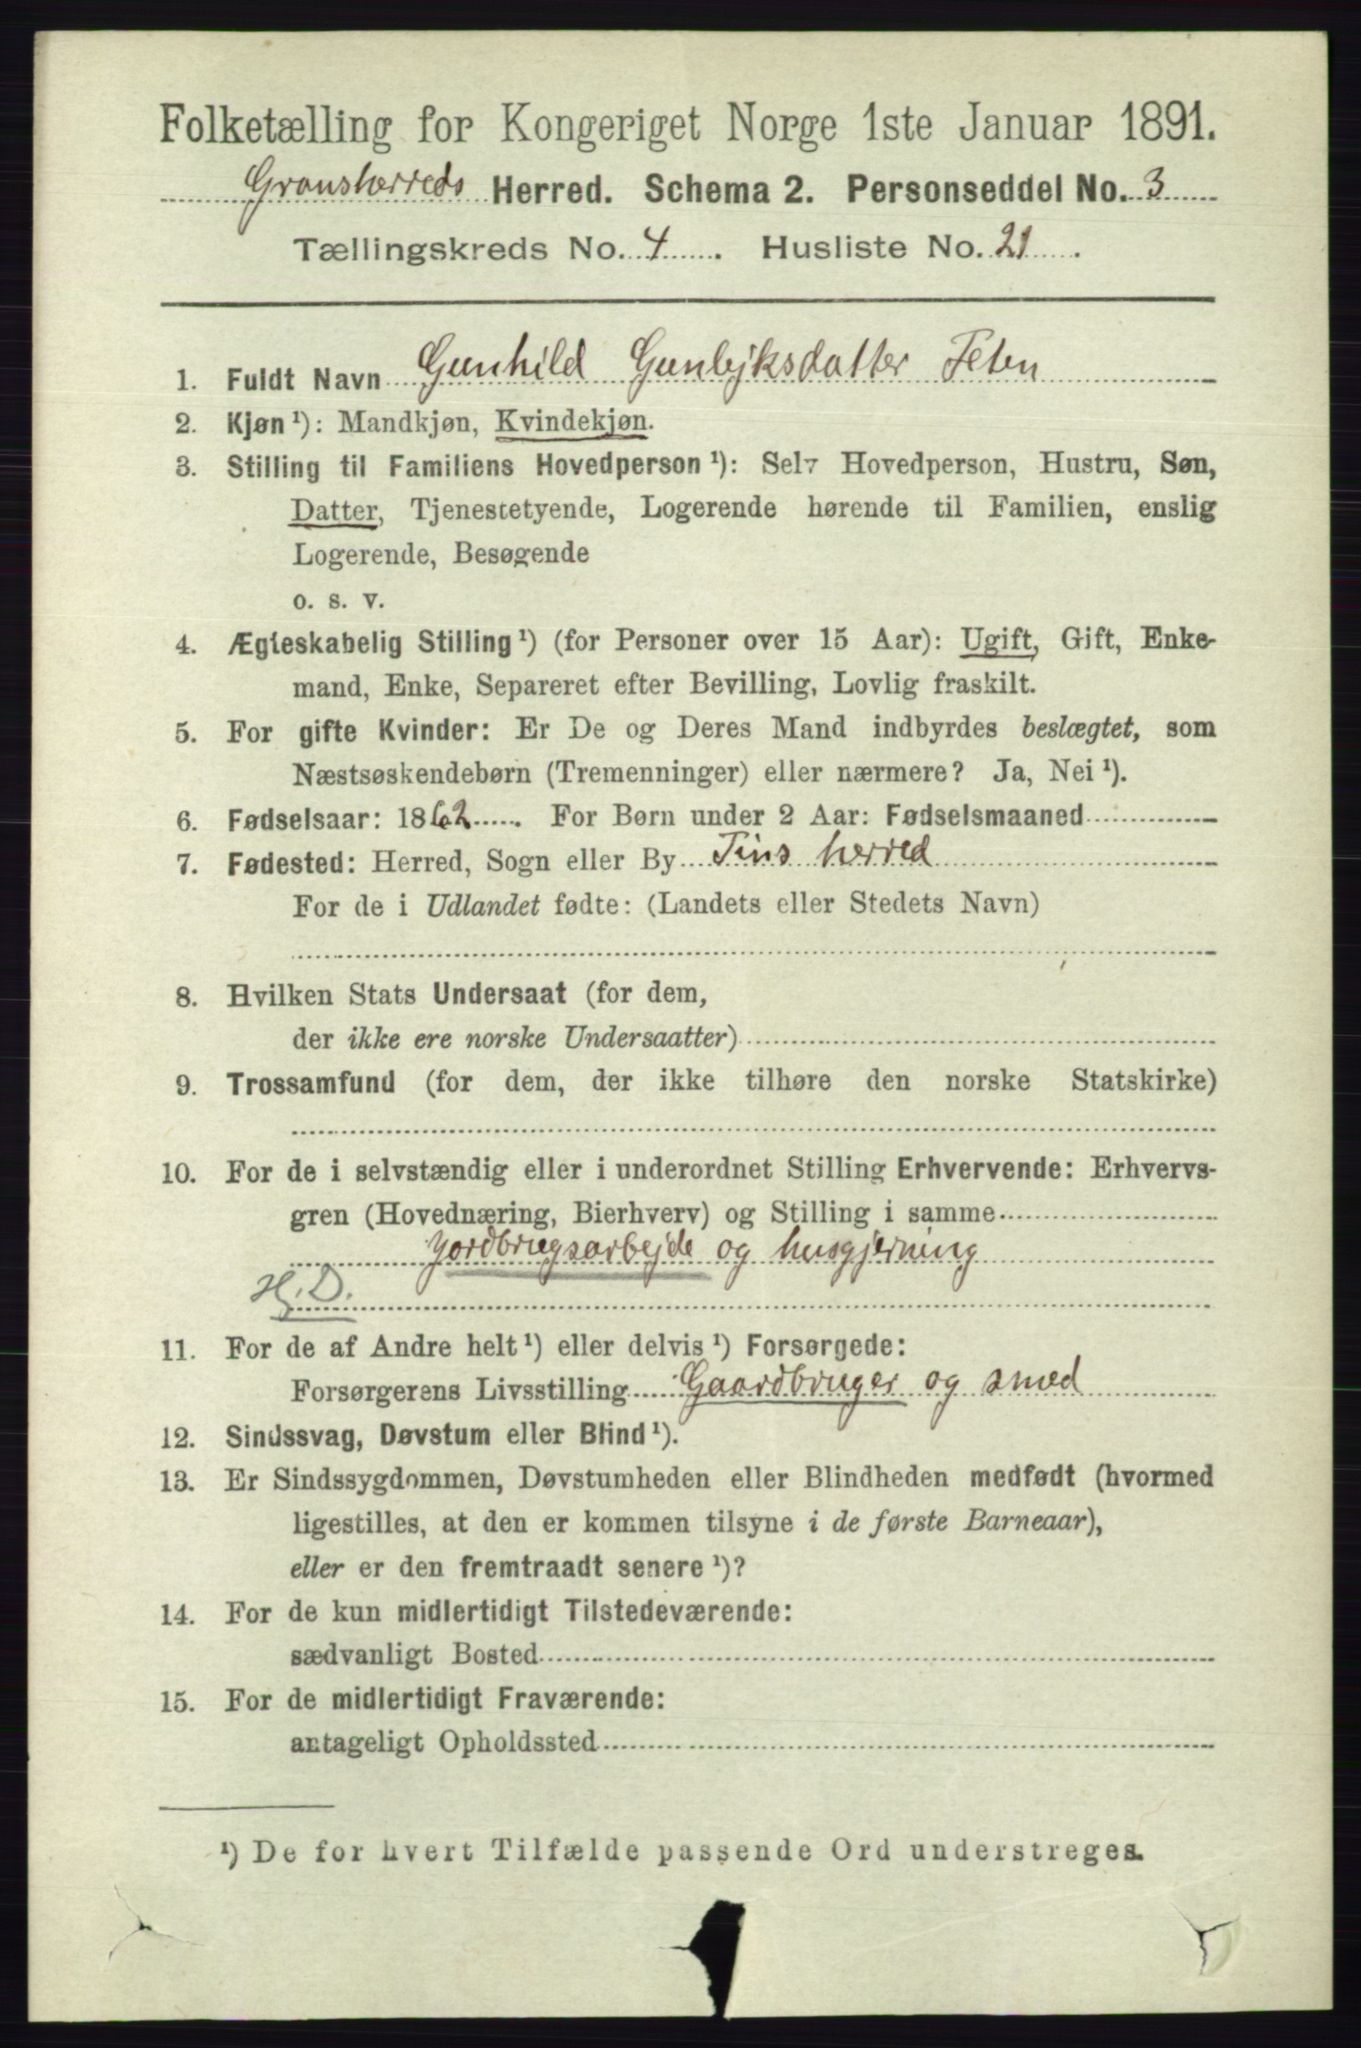 Folketælling for Kongeriget Norge 1ste Januar 1891.
Gransherreds Herred. Schema 2. Personseddel No. 3
Tællingskreds No. 4. Husliste No. 21.
1. Fuldt Navn Gunhild Gunlejksdatter Feten
2. Kjøn ¹): Mandkjøn, Kvindekjøn.
3. Stilling til Familiens Hovedperson ¹): Selv Hovedperson, Hustru, Søn,
Datter, Tjenestetyende, Logerende hørende til Familien, enslig
Logerende, Besøgende
o. s. v.
4. Ægteskabelig Stilling ¹) (for Personer over 15 Aar): Ugift, Gift, Enke-
mand, Enke, Separeret efter Bevilling, Lovlig fraskilt.
5. For gifte Kvinder: Er De og Deres Mand indbyrdes beslægtet, som
Næstsøskendebørn (Tremenninger) eller nærmere? Ja, Nei ¹).
6. Fødselsaar: 1862. For Børn under 2 Aar: Fødselsmaaned
7. Fødested: Herred, Sogn eller By Tins herred
For de i Udlandet fødte: (Landets eller Stedets Navn)
8. Hvilken Stats Undersaat (for dem,
der ikke ere norske Undersaatter)
9. Trossamfund (for dem, der ikke tilhøre den norske Statskirke)
10. For de i selvstændig eller i underordnet Stilling Erhvervende: Erhvervs-
gren (Hovednæring, Bierhverv) og Stilling i samme
Jordbrugsarbejde og husgjerning
Hj. D.
11. For de af Andre helt ¹) eller delvis ¹) Forsørgede:
Forsørgerens Livsstilling Gaardbruger og smed
12. Sindssvag, Døvstum eller Blind ¹).
13. Er Sindssygdommen, Døvstumheden eller Blindheden medfødt (hvormed
ligestilles, at den er kommen tilsyne i de første Barneaar),
eller er den fremtraadt senere ¹)?
14. For de kun midlertidigt Tilstedeværende:
sædvanligt Bosted
15. For de midlertidigt Fraværende:
antageligt Opholdssted
¹) De for hvert Tilfælde passende Ord understreges.